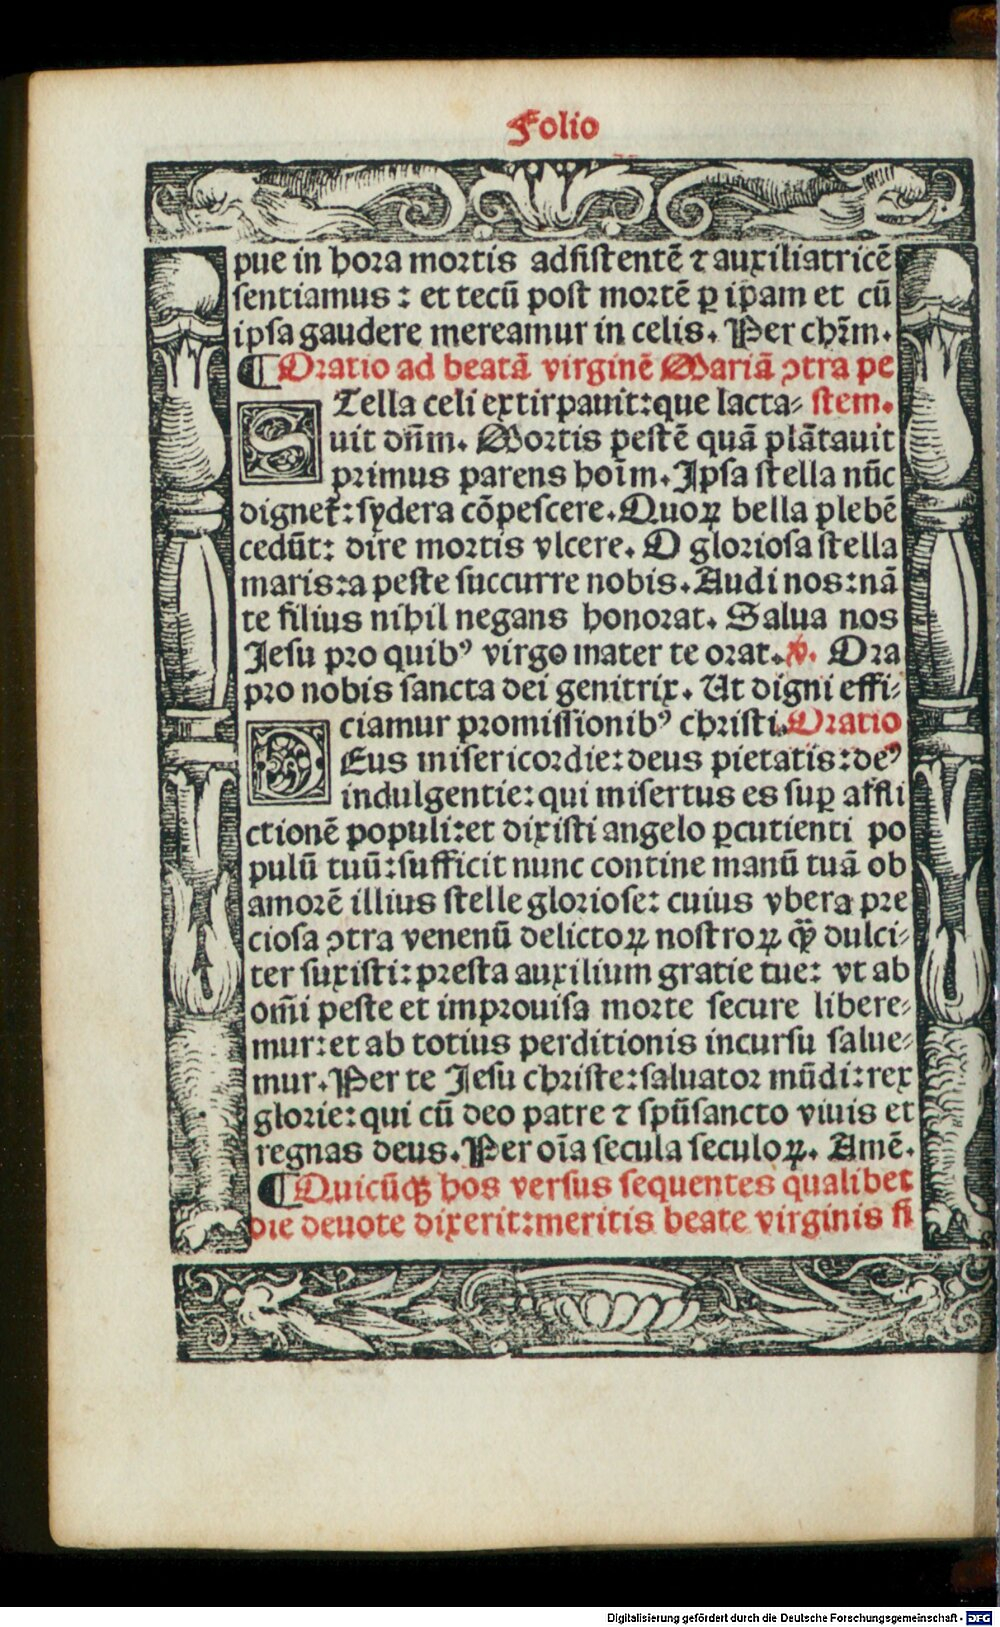 Folio
pue in hora mortis adsistentē ⁊ auxiliatricē
sentiamus : et tecū post mortē ꝑ ip̄am et cū
ipsa gaudere mereamur in celis. Per chr̄m.
¶ Oratio ad beatā virginē Mariā ↄtra pe
STella celi extirpauit: que lacta⸗ stem.
uit dn̄m. Mortis pestē quā plātauit
primus parens hoīm. Ipsa stella nūc
dignet᷑: sydera cōpescere. Quoꝝ bella plebē
cedūt: dire mortis vlcere. O gloriosa stella
maris: a peste succurre nobis. Audi nos: nā
te filius nihil negans honorat. Salua nos
Jesu pro quibꝰ virgo mater te orat. ℣. Ora
pro nobis sancta dei genitrix. Ut digni effi⸗
ciamur promissionibꝰ christi. Oratio
DEus misericordie: deus pietatis: deꝰ
indulgentie: qui misertus es suꝑ affli
ctionē populi: et dixisti angelo ꝑcutienti po
pulū tuū: sufficit nunc contine manū tuā ob
amorē illius stelle gloriose: cuius vbera pre
ciosa ↄtra venenū delictoꝝ nostroꝝ q̄ꝫ dulci⸗
ter suxisti: presta auxilium gratie tue: vt ab
om̄i peste et improuisa morte secure libere⸗
mur: et ab totius perditionis incursu salue⸗
mur. Per te Jesu christe: saluator mūdi: rex
glorie: qui cū deo patre ⁊ spūsancto viuis et
regnas deus. Per oīa secula seculoꝝ. Amē.
¶ Quicūqꝫ hos versus sequentes qualibet
die deuote dixerit: meritis beate virginis fi
Digitalisierung gefördert durch die Deutsche Forschungsgemeinschaft - DFG